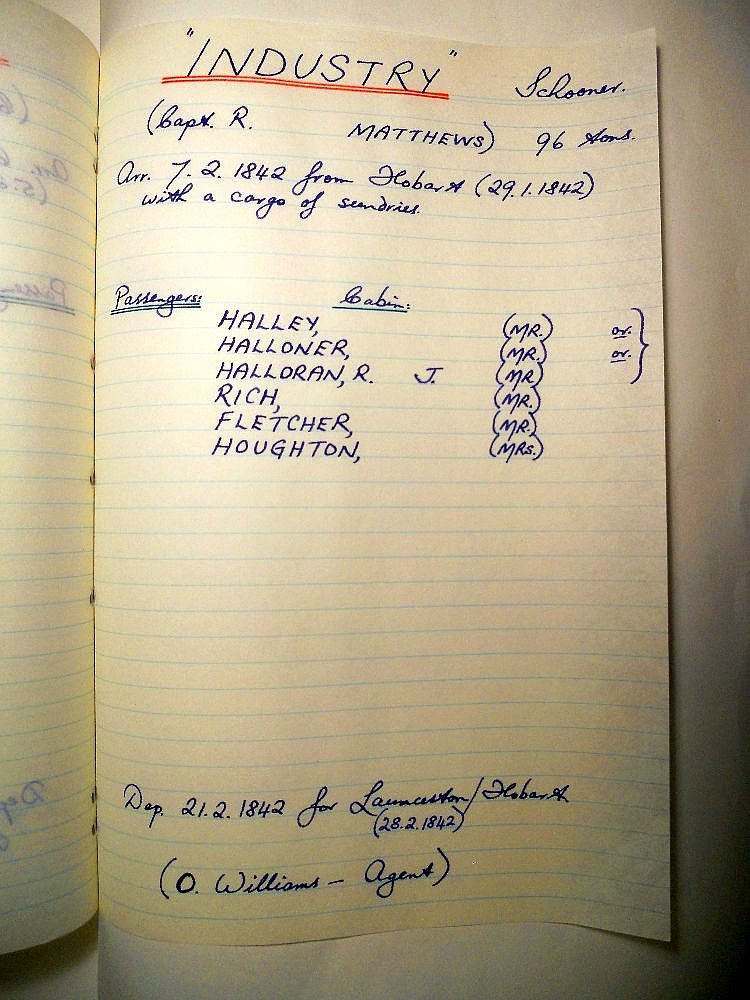 "INDUSTRY" Schooner.
(Capt. R. MATTHEWS) 96 tons.
Arr. 7.2.1842 from Hobart (29.1.1842)
with a cargo of sundries.
Passengers: Cabin:
HALLEY, (MR.) or.
HALLONER, (MR.) or.
HALLORAN, R. J. (MR)
RICH, (MR.)
FLETCHER, (MR.)
HOUGHTON, (MRS.)
Dep. 21.2.1842 for Launceston/Hobart
(28.2.1842)
(O. Williams - Agent)